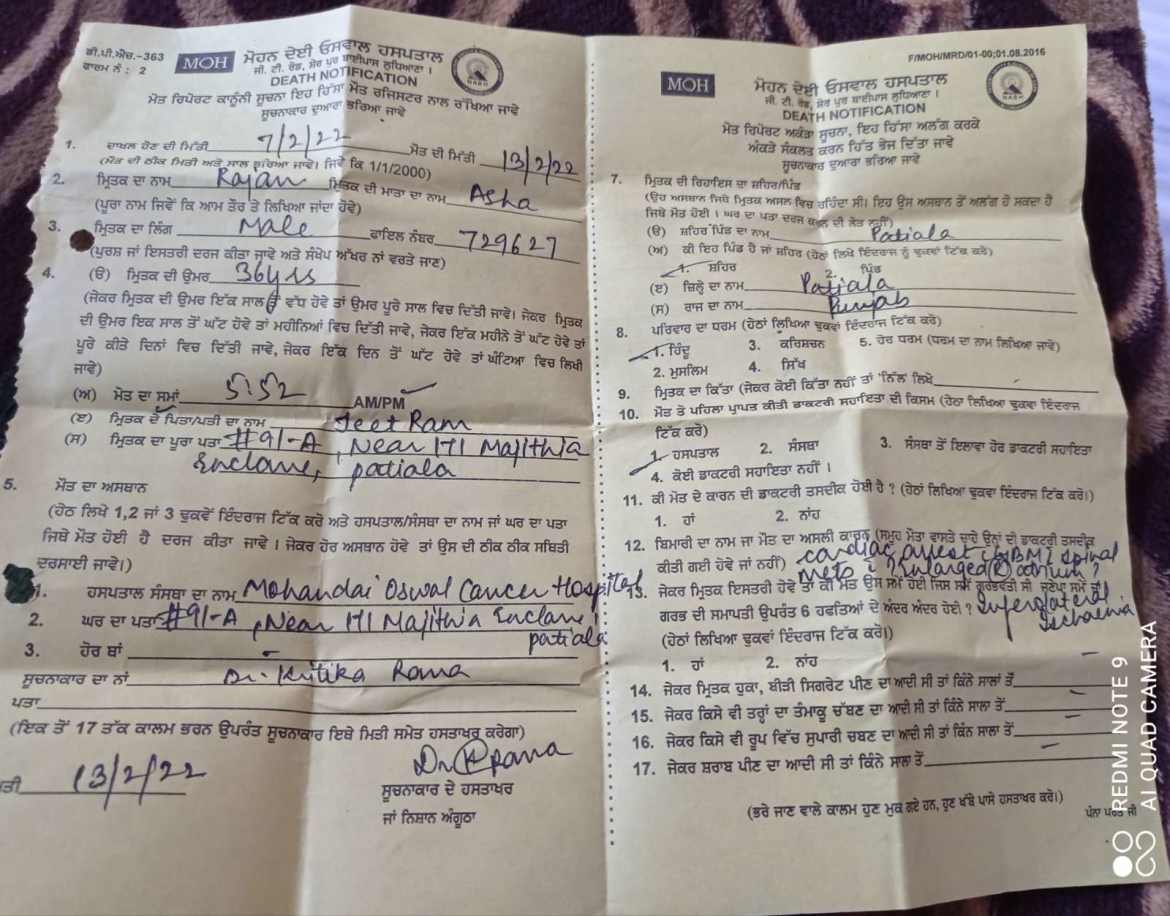 ਡੀ.ਪੀ.ਐਚ.-363
ਫਾਰਮ ਨੰ : 2
MOH ਮੋਹਨ ਦੇਈ ਓਸਵਾਲ ਹਸਪਤਾਲ
ਜੀ. ਟੀ. ਰੋਡ, ਸ਼ੇਰ ਪੁਰ ਬਾਈਪਾਸ ਲੁਧਿਆਣਾ ।
DEATH NOTIFICATION
ਮੌਤ ਰਿਪੋਰਟ ਕਾਨੂੰਨੀ ਸੂਚਨਾ ਇਹ ਹਿੱਸਾ ਮੌਤ ਰਜਿਸਟਰ ਨਾਲ ਰੱਖਿਆ ਜਾਵੇ
ਸੂਚਨਾਕਾਰ ਦੁਆਰਾ ਭਰਿਆ ਜਾਵੇ
1. ਦਾਖਲ ਹੋਣ ਦੀ ਮਿਤੀ 7/2/22 ਮੌਤ ਦੀ ਮਿਤੀ 13/2/22
(ਮੌਤ ਦੀ ਠੀਕ ਮਿਤੀ ਅਤੇ ਸਾਲ ਭਰਿਆ ਜਾਵੇ। ਜਿਵੇਂ ਕਿ 1/1/2000)
2. ਮ੍ਰਿਤਕ ਦਾ ਨਾਮ Rajan ਮ੍ਰਿਤਕ ਦੀ ਮਾਤਾ ਦਾ ਨਾਮ Asha
(ਪੂਰਾ ਨਾਮ ਜਿਵੇਂ ਕਿ ਆਮ ਤੌਰ ਤੇ ਲਿਖਿਆ ਜਾਂਦਾ ਹੋਵੇ)
3. ਮ੍ਰਿਤਕ ਦਾ ਲਿੰਗ Male ਫਾਇਲ ਨੰਬਰ 729627
(ਪੁਰਸ਼ ਜਾਂ ਇਸਤਰੀ ਦਰਜ ਕੀਤਾ ਜਾਵੇ ਅਤੇ ਸੰਖੇਪ ਅੱਖਰ ਨਾਂ ਵਰਤੇ ਜਾਣ)
4. (ੳ) ਮ੍ਰਿਤਕ ਦੀ ਉਮਰ 36yrs
(ਜੇਕਰ ਮ੍ਰਿਤਕ ਦੀ ਉਮਰ ਇੱਕ ਸਾਲ ਤੋਂ ਵੱਧ ਹੋਵੇ ਤਾਂ ਉਮਰ ਪੂਰੇ ਸਾਲ ਵਿਚ ਦਿੱਤੀ ਜਾਵੇ। ਜੇਕਰ ਮ੍ਰਿਤਕ
ਦੀ ਉਮਰ ਇਕ ਸਾਲ ਤੋਂ ਘੱਟ ਹੋਵੇ ਤਾਂ ਮਹੀਨਿਆਂ ਵਿਚ ਦਿੱਤੀ ਜਾਵੇ, ਜੇਕਰ ਇੱਕ ਮਹੀਨੇ ਤੋਂ ਘੱਟ ਹੋਵੇ ਤਾਂ
ਪੂਰੇ ਕੀਤੇ ਦਿਨਾਂ ਵਿਚ ਦਿੱਤੀ ਜਾਵੇ, ਜੇਕਰ ਇੱਕ ਦਿਨ ਤੋਂ ਘੱਟ ਹੋਵੇ ਤਾਂ ਘੰਟਿਆ ਵਿਚ ਲਿਖੀ
ਜਾਵੇ)
(ਅ) ਮੌਤ ਦਾ ਸਮਾਂ 5:52 AM/PM
(ੲ) ਮ੍ਰਿਤਕ ਦੇ ਪਿਤਾ/ਪਤੀ ਦਾ ਨਾਮ Jeet Ram
(ਸ) ਮ੍ਰਿਤਕ ਦਾ ਪੂਰਾ ਪਤਾ #91-A, Near ITI Majithia
Enclave, patiala
5. ਮੌਤ ਦਾ ਅਸਥਾਨ
(ਹੇਠ ਲਿਖੇ 1,2 ਜਾਂ 3 ਢੁਕਵੇਂ ਇੰਦਰਾਜ ਟਿੱਕ ਕਰੋ ਅਤੇ ਹਸਪਤਾਲ/ਸੰਸਥਾ ਦਾ ਨਾਮ ਜਾਂ ਘਰ ਦਾ ਪਤਾ
ਜਿਥੇ ਮੌਤ ਹੋਈ ਹੈ ਦਰਜ ਕੀਤਾ ਜਾਵੇ । ਜੇਕਰ ਹੋਰ ਅਸਥਾਨ ਹੋਵੇ ਤਾਂ ਉਸ ਦੀ ਠੀਕ ਠੀਕ ਸਥਿਤੀ
ਦਰਸਾਈ ਜਾਵੇ।)
1. ਹਸਪਤਾਲ ਸੰਸਥਾ ਦਾ ਨਾਮ Mohandai Oswal Cancer Hospital
2. ਘਰ ਦਾ ਪਤਾ #91-A, Near ITI Majithia Enclave
patiala
3. ਹੋਰ ਥਾਂ -
ਸੂਚਨਾਕਾਰ ਦਾ ਨਾਂ Dr. Kritika Rana
ਪਤਾ
(ਇਕ ਤੋਂ 17 ਤੱਕ ਕਾਲਮ ਭਰਨ ਉਪਰੰਤ ਸੂਚਨਾਕਾਰ ਇਥੇ ਮਿਤੀ ਸਮੇਤ ਹਸਤਾਖਰ ਕਰੇਗਾ)
ਤੀ 13/2/22
ਸੂਚਨਾਕਾਰ ਦੇ ਹਸਤਾਖਰ
ਜਾਂ ਨਿਸ਼ਾਨ ਅੰਗੂਠਾ
F/MOH/MRD/01-00;01.08.2016
MOH ਮੋਹਨ ਦੇਈ ਓਸਵਾਲ ਹਸਪਤਾਲ
ਜੀ. ਟੀ. ਰੋਡ, ਸ਼ੇਰ ਪੁਰ ਬਾਈਪਾਸ ਲੁਧਿਆਣਾ ।
DEATH NOTIFICATION
ਮੌਤ ਰਿਪੋਰਟ ਅਕੰੜਾ ਸੂਚਨਾ, ਇਹ ਹਿੱਸਾ ਅਲੱਗ ਕਰਕੇ
ਅੰਕੜੇ ਸੰਕਲਤ ਕਰਨ ਹਿੱਤ ਭੇਜ ਦਿੱਤਾ ਜਾਵੇ
ਸੂਚਨਾਕਾਰ ਦੁਆਰਾ ਭਰਿਆ ਜਾਵੇ
7. ਮ੍ਰਿਤਕ ਦੀ ਰਿਹਾਇਸ ਦਾ ਸ਼ਹਿਰ/ਪਿੰਡ
(ਉਹ ਅਸਥਾਨ ਜਿਥੇ ਮ੍ਰਿਤਕ ਅਸਲ ਵਿਚ ਰਹਿੰਦਾ ਸੀ। ਇਹ ਉਸ ਅਸਥਾਨ ਤੋਂ ਅਲੱਗ ਹੋ ਸਕਦਾ ਹੈ
ਜਿਥੇ ਮੌਤ ਹੋਈ । ਘਰ ਦਾ ਪਤਾ ਦਰਜ ਕਰਨ ਦੀ ਲੋੜ ਨਹੀਂ)
(ੳ) ਸ਼ਹਿਰ ਪਿੰਡ ਦਾ ਨਾਮ Patiala
(ਅ) ਕੀ ਇਹ ਪਿੰਡ ਹੈ ਜਾਂ ਸ਼ਹਿਰ (ਹੇਠਾਂ ਲਿਖੇ ਇੰਦਰਾਜ ਨੂੰ ਢੁਕਵਾਂ ਟਿੱਕ ਕਰੋ)
1. ਸ਼ਹਿਰ 2. ਪਿੰਡ
(ੲ) ਜ਼ਿਲ੍ਹੇ ਦਾ ਨਾਮ Patiala
(ਸ) ਰਾਜ ਦਾ ਨਾਮ Punjab
8. ਪਰਿਵਾਰ ਦਾ ਧਰਮ (ਹੇਠਾਂ ਲਿਖਿਆ ਢੁਕਵਾਂ ਇੰਦਰਾਜ ਟਿੱਕ ਕਰੋ)
1. ਹਿੰਦੂ 3. ਕਰਿਸਚਨ 5. ਹੋਰ ਧਰਮ (ਧਰਮ ਦਾ ਨਾਮ ਲਿਖਿਆ ਜਾਵੇ)
2. ਮੁਸਲਿਮ 4. ਸਿੱਖ
9. ਮ੍ਰਿਤਕ ਦਾ ਕਿੱਤਾ (ਜੇਕਰ ਕੋਈ ਕਿੱਤਾ ਨਹੀਂ ਤਾਂ 'ਨਿੱਲ' ਲਿਖੋ
10. ਮੌਤ ਤੇ ਪਹਿਲਾ ਪ੍ਰਾਪਤ ਕੀਤੀ ਡਾਕਟਰੀ ਸਹਾਇਤਾ ਦੀ ਕਿਸਮ (ਹੇਠਾ ਲਿਖਿਆ ਢੁਕਵਾ ਇੰਦਰਾਜ
ਟਿੱਕ ਕਰੋ)
1. ਹਸਪਤਾਲ 2. ਸੰਸਥਾ 3. ਸੰਸਥਾ ਤੋਂ ਇਲਾਵਾ ਹੋਰ ਡਾਕਟਰੀ ਸਹਾਇਤਾ
4. ਕੋਈ ਡਾਕਟਰੀ ਸਹਾਇਤਾ ਨਹੀਂ ।
11. ਕੀ ਮੌਤ ਦੇ ਕਾਰਨ ਦੀ ਡਾਕਟਰੀ ਤਸਦੀਕ ਹੋਈ ਹੈ ? (ਹੇਠਾਂ ਲਿਖਿਆ ਢੁਕਵਾ ਇੰਦਰਾਜ ਟਿੱਕ ਕਰੋ।)
1. ਹਾਂ 2. ਨਾਂਹ
12. ਬਿਮਾਰੀ ਦਾ ਨਾਮ ਜਾਂ ਮੌਤ ਦਾ ਅਸਲੀ ਕਾਰਨ (ਸਮੂਹ ਮੌਤਾ ਵਾਸਤੇ ਚਾਹੇ ਉਨ੍ਹਾਂ ਦੀ ਡਾਕਟਰੀ ਤਸਦੀਕ
ਕੀਤੀ ਗਈ ਹੋਵੇ ਜਾਂ ਨਹੀਂ) cardiac arrest spinal
mets ? enlarged
13. ਜੇਕਰ ਮ੍ਰਿਤਕ ਇਸਤਰੀ ਹੋਵੇ ਤਾਂ ਕੀ ਮੌਤ ਉਸ ਸਮੇਂ ਹੋਈ ਜਿਸ ਸਮੇਂ ਗਰਭਵਤੀ ਸੀ
ਗਰਭ ਦੀ ਸਮਾਪਤੀ ਉਪਰੰਤ 6 ਹਫਤਿਆਂ ਦੇ ਅੰਦਰ ਅੰਦਰ ਹੋਈ ? Inferolateral
Ischaemia
(ਹੇਠਾਂ ਲਿਖਿਆ ਢੁਕਵਾਂ ਇੰਦਰਾਜ ਟਿੱਕ ਕਰੋ।)
1. ਹਾਂ 2. ਨਾਂਹ
14. ਜੇਕਰ ਮ੍ਰਿਤਕ ਹੁਕਾ, ਬੀੜੀ ਸਿਗਰੇਟ ਪੀਣ ਦਾ ਆਦੀ ਸੀ ਤਾਂ ਕਿੰਨੇ ਸਾਲਾਂ ਤੋਂ -
15. ਜੇਕਰ ਕਿਸੇ ਵੀ ਤਰ੍ਹਾਂ ਦਾ ਤੰਮਾਕੂ ਚੱਬਣ ਦਾ ਆਦੀ ਸੀ ਤਾਂ ਕਿੰਨੇ ਸਾਲਾ ਤੋਂ -
16. ਜੇਕਰ ਕਿਸੇ ਵੀ ਰੂਪ ਵਿੱਚ ਸੁਪਾਰੀ ਚਬਣ ਦਾ ਆਦੀ ਸੀ ਤਾਂ ਕਿੰਨ ਸਾਲਾ ਤੋਂ -
17. ਜੇਕਰ ਸ਼ਰਾਬ ਪੀਣ ਦਾ ਆਦੀ ਸੀ ਤਾਂ ਕਿੰਨੇ ਸਾਲਾ ਤੋਂ -
(ਭਰੇ ਜਾਣ ਵਾਲੇ ਕਾਲਮ ਹੁਣ ਮੁਕ ਗਏ ਹਨ, ਹੁਣ ਖੱਬੇ ਪਾਸੇ ਹਸਤਾਖਰ ਕਰੋ।)
REDMI NOTE 9
AI QUAD CAMERA